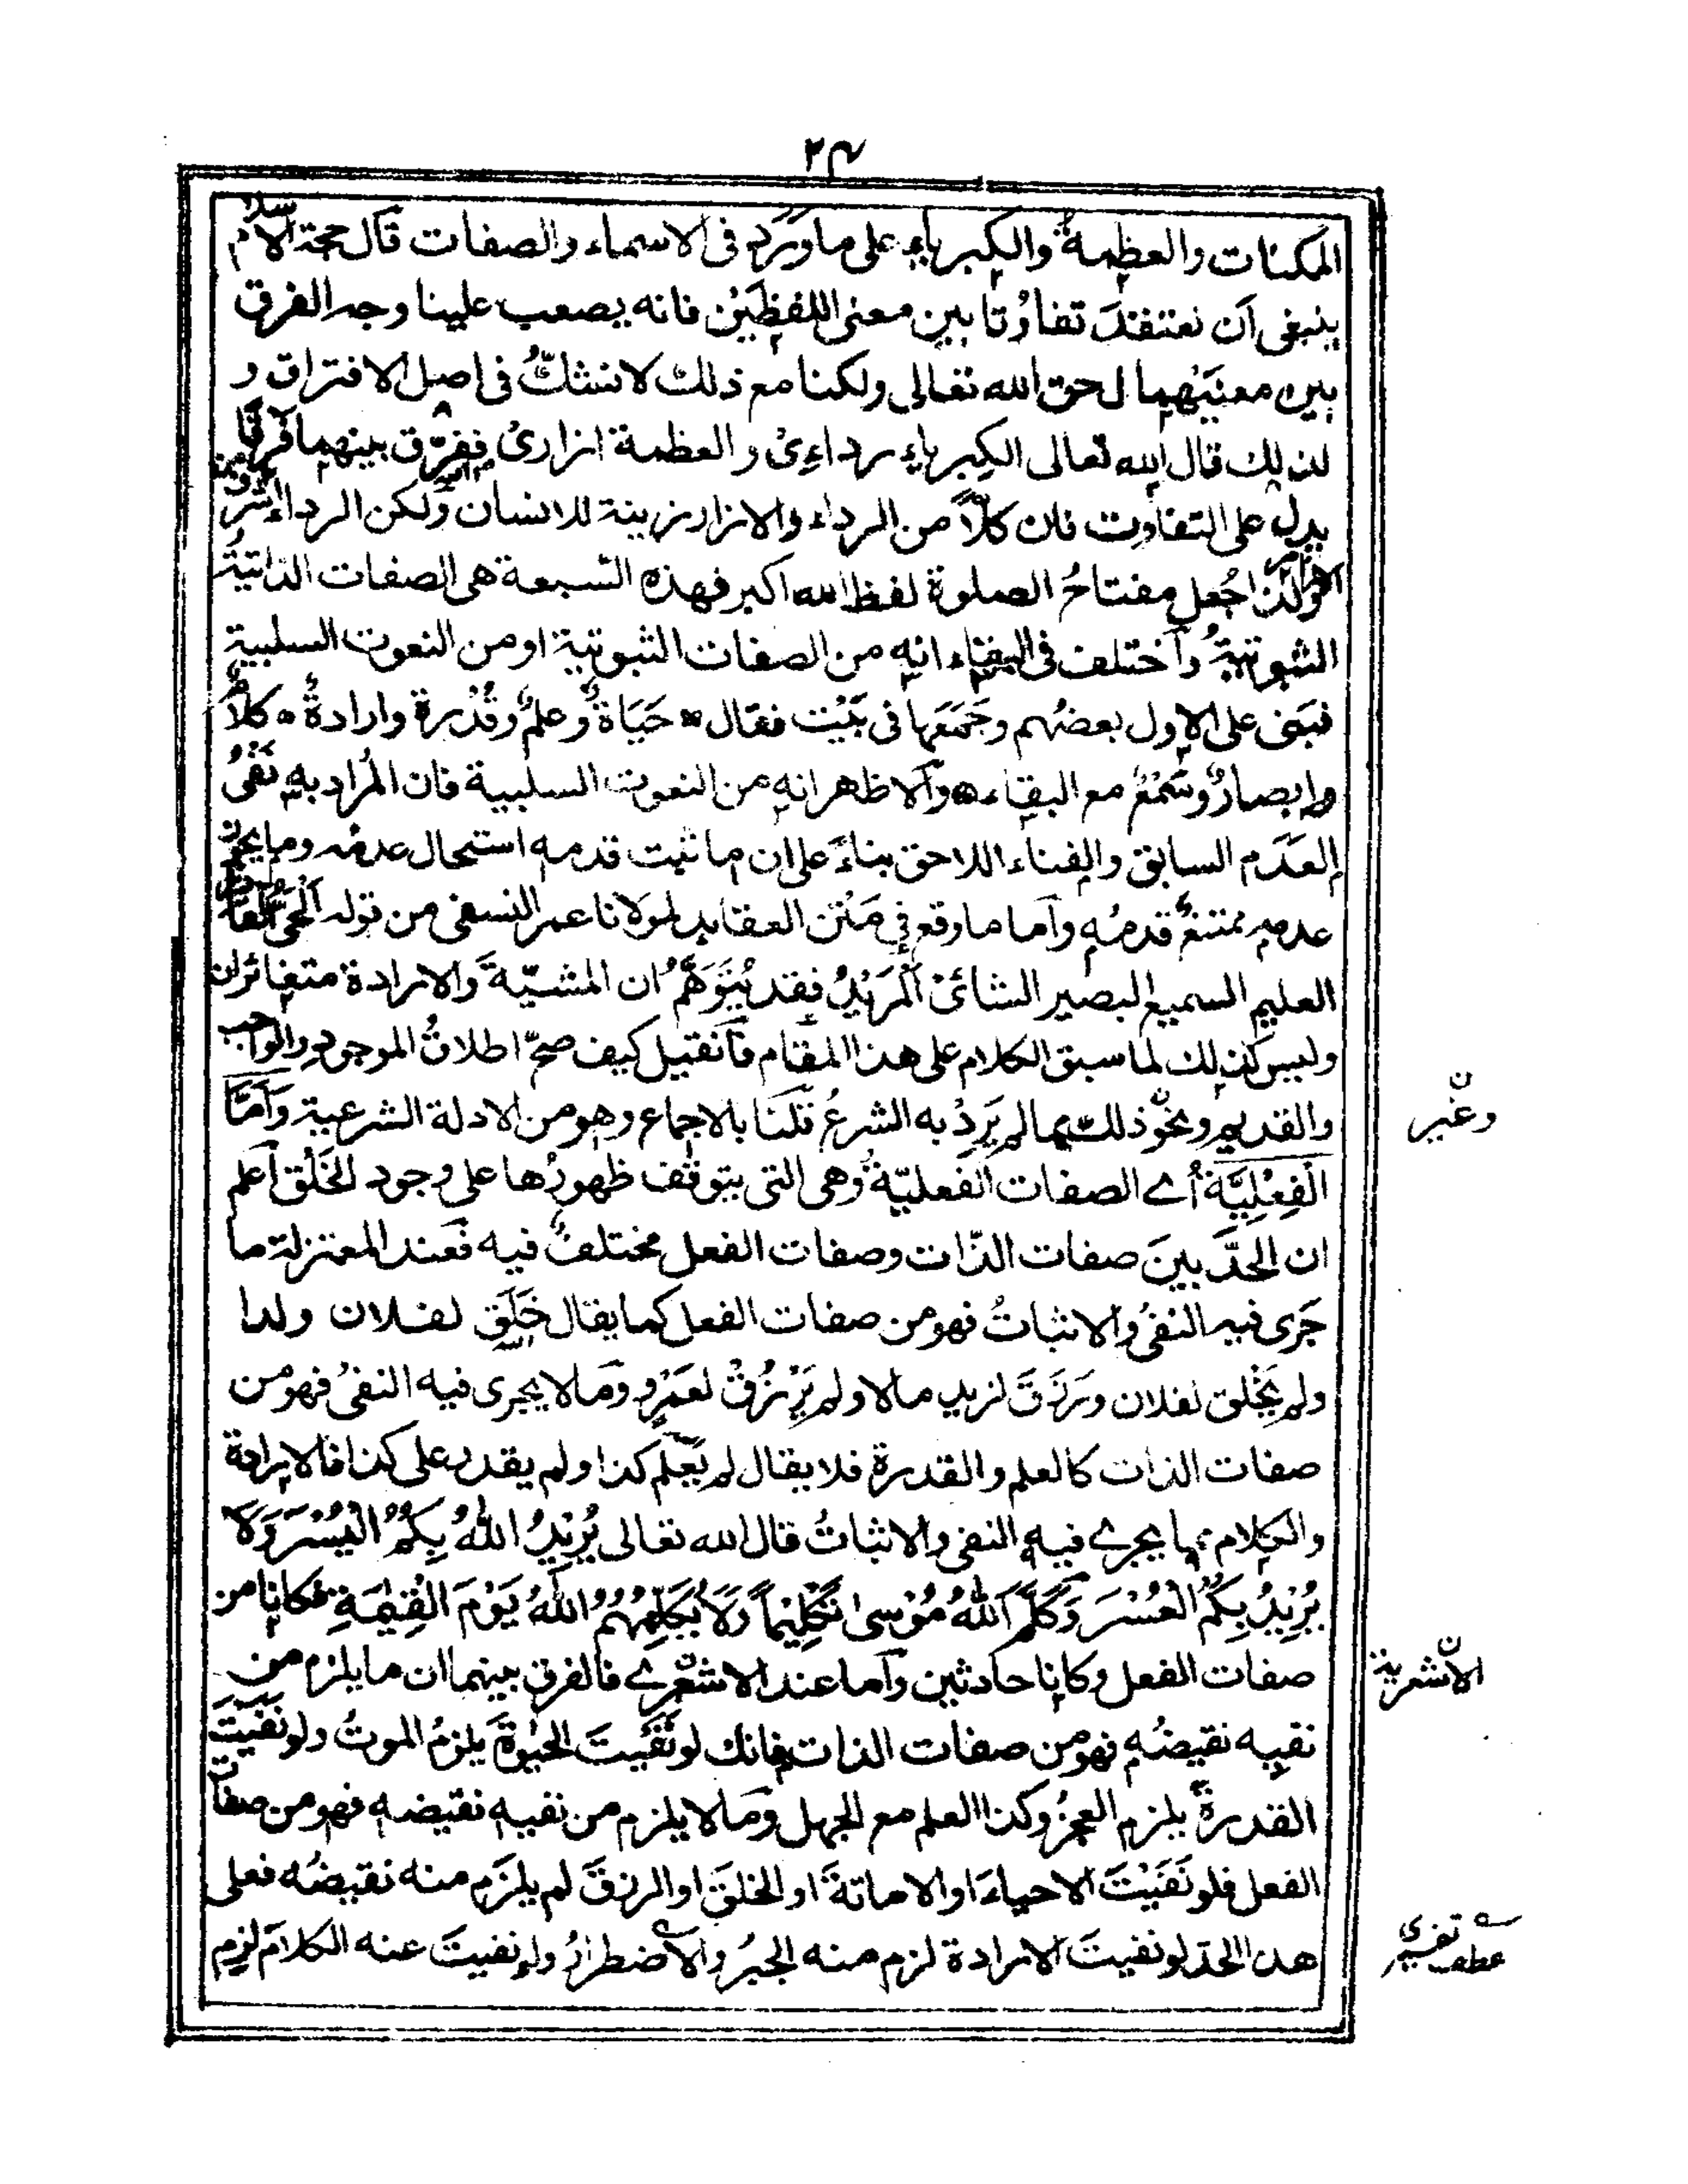 ٢٤
الممكنات والعظمة والكبرياء على ما ورد في الاسماء والصفات قال حجة الاسلام
ينبغي أن نعتقد تفاوتا بين معنى اللفظين فانه يصعب علينا وجه الفرق
بين معنييهما ل حق الله تعالى ولكنا مع ذلك لا نشك في اصل الافتراق و
لذلك قال الله تعالى الكبرياء رداءي والعظمة ازاري ففرق بينهما فرقا
يدل على التفاوت فان كلا من الرداء والازار زينة للانسان ولكن الرداء اشرف من
الازار ولذا جعل مفتاح الصلوة لفظ الله اكبر فهذه السبعة هى الصفات الذاتية
الثبوتية وأختلف في البقاء انه من الصفات الثبوتية او من النعوت السلبية
فبنى على الاول بعضهم وجمعها في بيت فقال حَيَاةٌ وعلمٌ وقُدْرة وارادةٌ كلامٌ
وابصارٌ وسَمْعٌ مع البقاء والاظهر انه من النعوت السلبية فان المراد به نفيُ
العَدَم السابق والفناء اللاحق بناءً على ان ما ثبت قدمه استحال عدمه وما يجوز
عدمه ممتنعٌ قدمُه وأما ما وقع في مَتْن العقايد لمولانا عمر النسفى من قوله الحيّ القادر
العليم السميع البصير الشائئ المريدُ فقد يُتَوَهَّمُ ان المشيّةَ والارادة متغائران
وليس كذلك لما سبق الكلام على هذا المقام فأنقيل كيف صحّ اطلاقُ الموجود والواجب
والقديم ونحو ذلك مما لم يَرِدْ به الشرعُ قلنا بالاجماع وهو من الادلة الشرعية وَأَمَّا
الفِعْلِيَّة أے الصفات الفعليّة وهى التى يتوقف ظهورُها على وجود الخَلْق أعلم
ان الحدَّ بينَ صفات الذّات وصفات الفعل مختلفٌ فيه فعند المعتزلة ما
جَرى فيه النفىُ والاثباتُ فهو من صفات الفعل كما يقال خَلَقَ لفلان ولدا
ولم يَخْلق لفلان ورَزَقَ لزيد مالا ولم يَرْزُقْ لعَمْرٍو وما لا يجرى فيه النفىُ فهو من
صفات الذات كالعلم والقدرة فلا يقال لم يَعْلم كذا ولم يقدر على كذا فالارادة
والكلام مما يجرے فيه النفى والاثباتُ قال الله تعالى يُرِيْدُ اللّٰهُ بِكُمُ الْيُسْرَ وَلَا
يُرِيْدُ بِكُمُ الْعُسْرَ وَكَلَّمَ اللّٰهُ مُوْسىٰ تَكْلِيْماً وَلَا يُكَلِّمُهُمُ اللّٰهُ يَوْمَ الْقِيٰمَةِ فكانا من
صفات الفعل وكانا حادثين وأما عند الاشعرے فالفرق بينهما ان ما يلزم من
نفيه نقيضُه فهو من صفات الذات فانك لو نَفَيتَ الحيٰوةَ يلزمُ الموتُ ولو نَفَيْتَ
القدرةَ يلزم العجزُ وكذا العلم مع الجهل وما لا يلزم من نفيه نقيضه فهو من صفات
الفعل فلو نَفَيْتَ الاحياءَ او الاماتةَ او الخلقَ او الرزقَ لم يلزَم منه نقيضُه فعلى
هذا الحد لو نفيتَ الارادة لزم منه الجبرُ والاضطرارُ ولو نفيتَ عنه الكلامَ لزم
ن
وغير
ن
الاشعرية
عطف تفسيرى